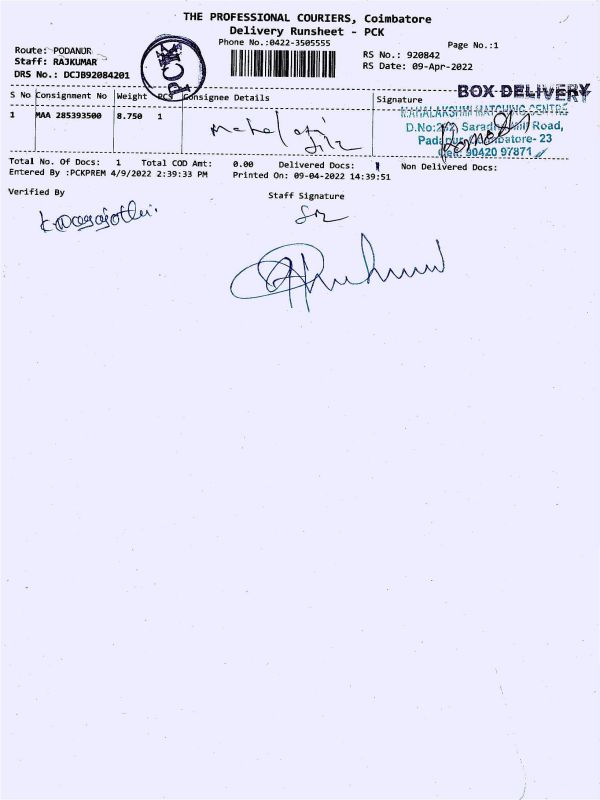 THE PROFESSIONAL COURIERS, Coimbatore
Delivery Runsheet - PCK
Phone No.:0422-3505555
Page No.:1
Route: PODANUR
Staff: RAJKUMAR
DRS No.: DCJB92084201
PCK
RS No.: 920842
RS Date: 09-Apr-2022
BOX DELIVERY
S No Consignment No Weight PCS Consignee Details Signature
1 MAA 285393500 8.750 1
MAHALAKSHMI MATCHING CENTRE
D.No: Road,
23
Cell: 90420 97871
Total No. Of Docs: 1 Total COD Amt: 0.00 Delivered Docs: 1 Non Delivered Docs:
Entered By :PCKPREM 4/9/2022 2:39:33 PM Printed On: 09-04-2022 14:39:51
Verified By Staff Signature